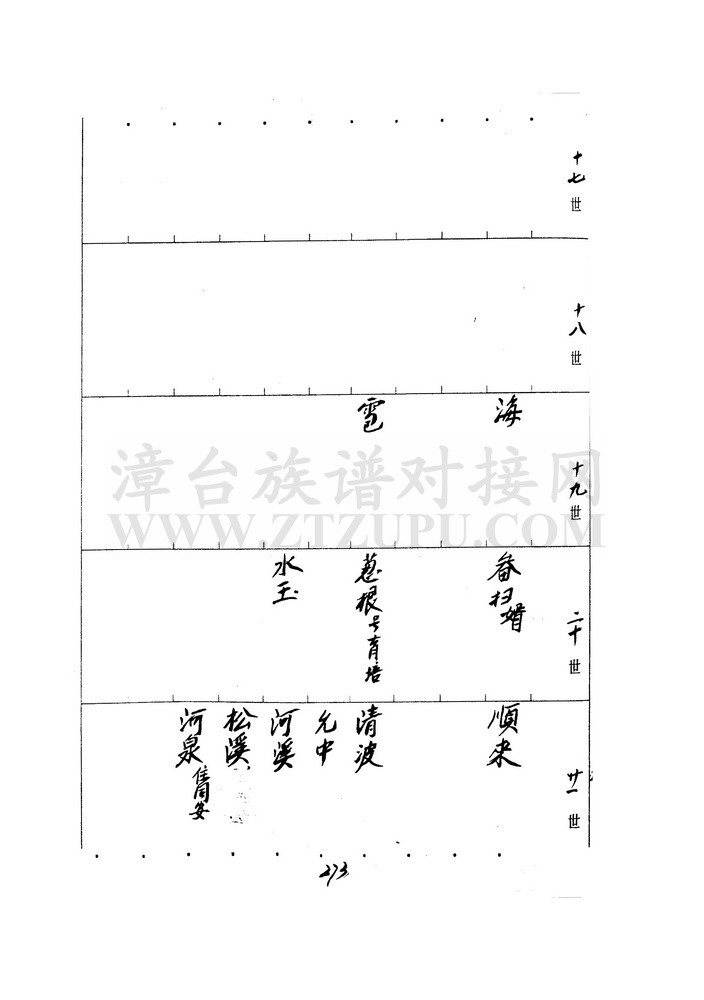 十七世
十八世
十九世
海
雹
二十世
畚扫婿
葱根号育培
水玉
廿一世
順来
清波
允中
河溪
松溪
河泉住同安
273
漳台族谱对接网
WWW.ZTZUPU.COM